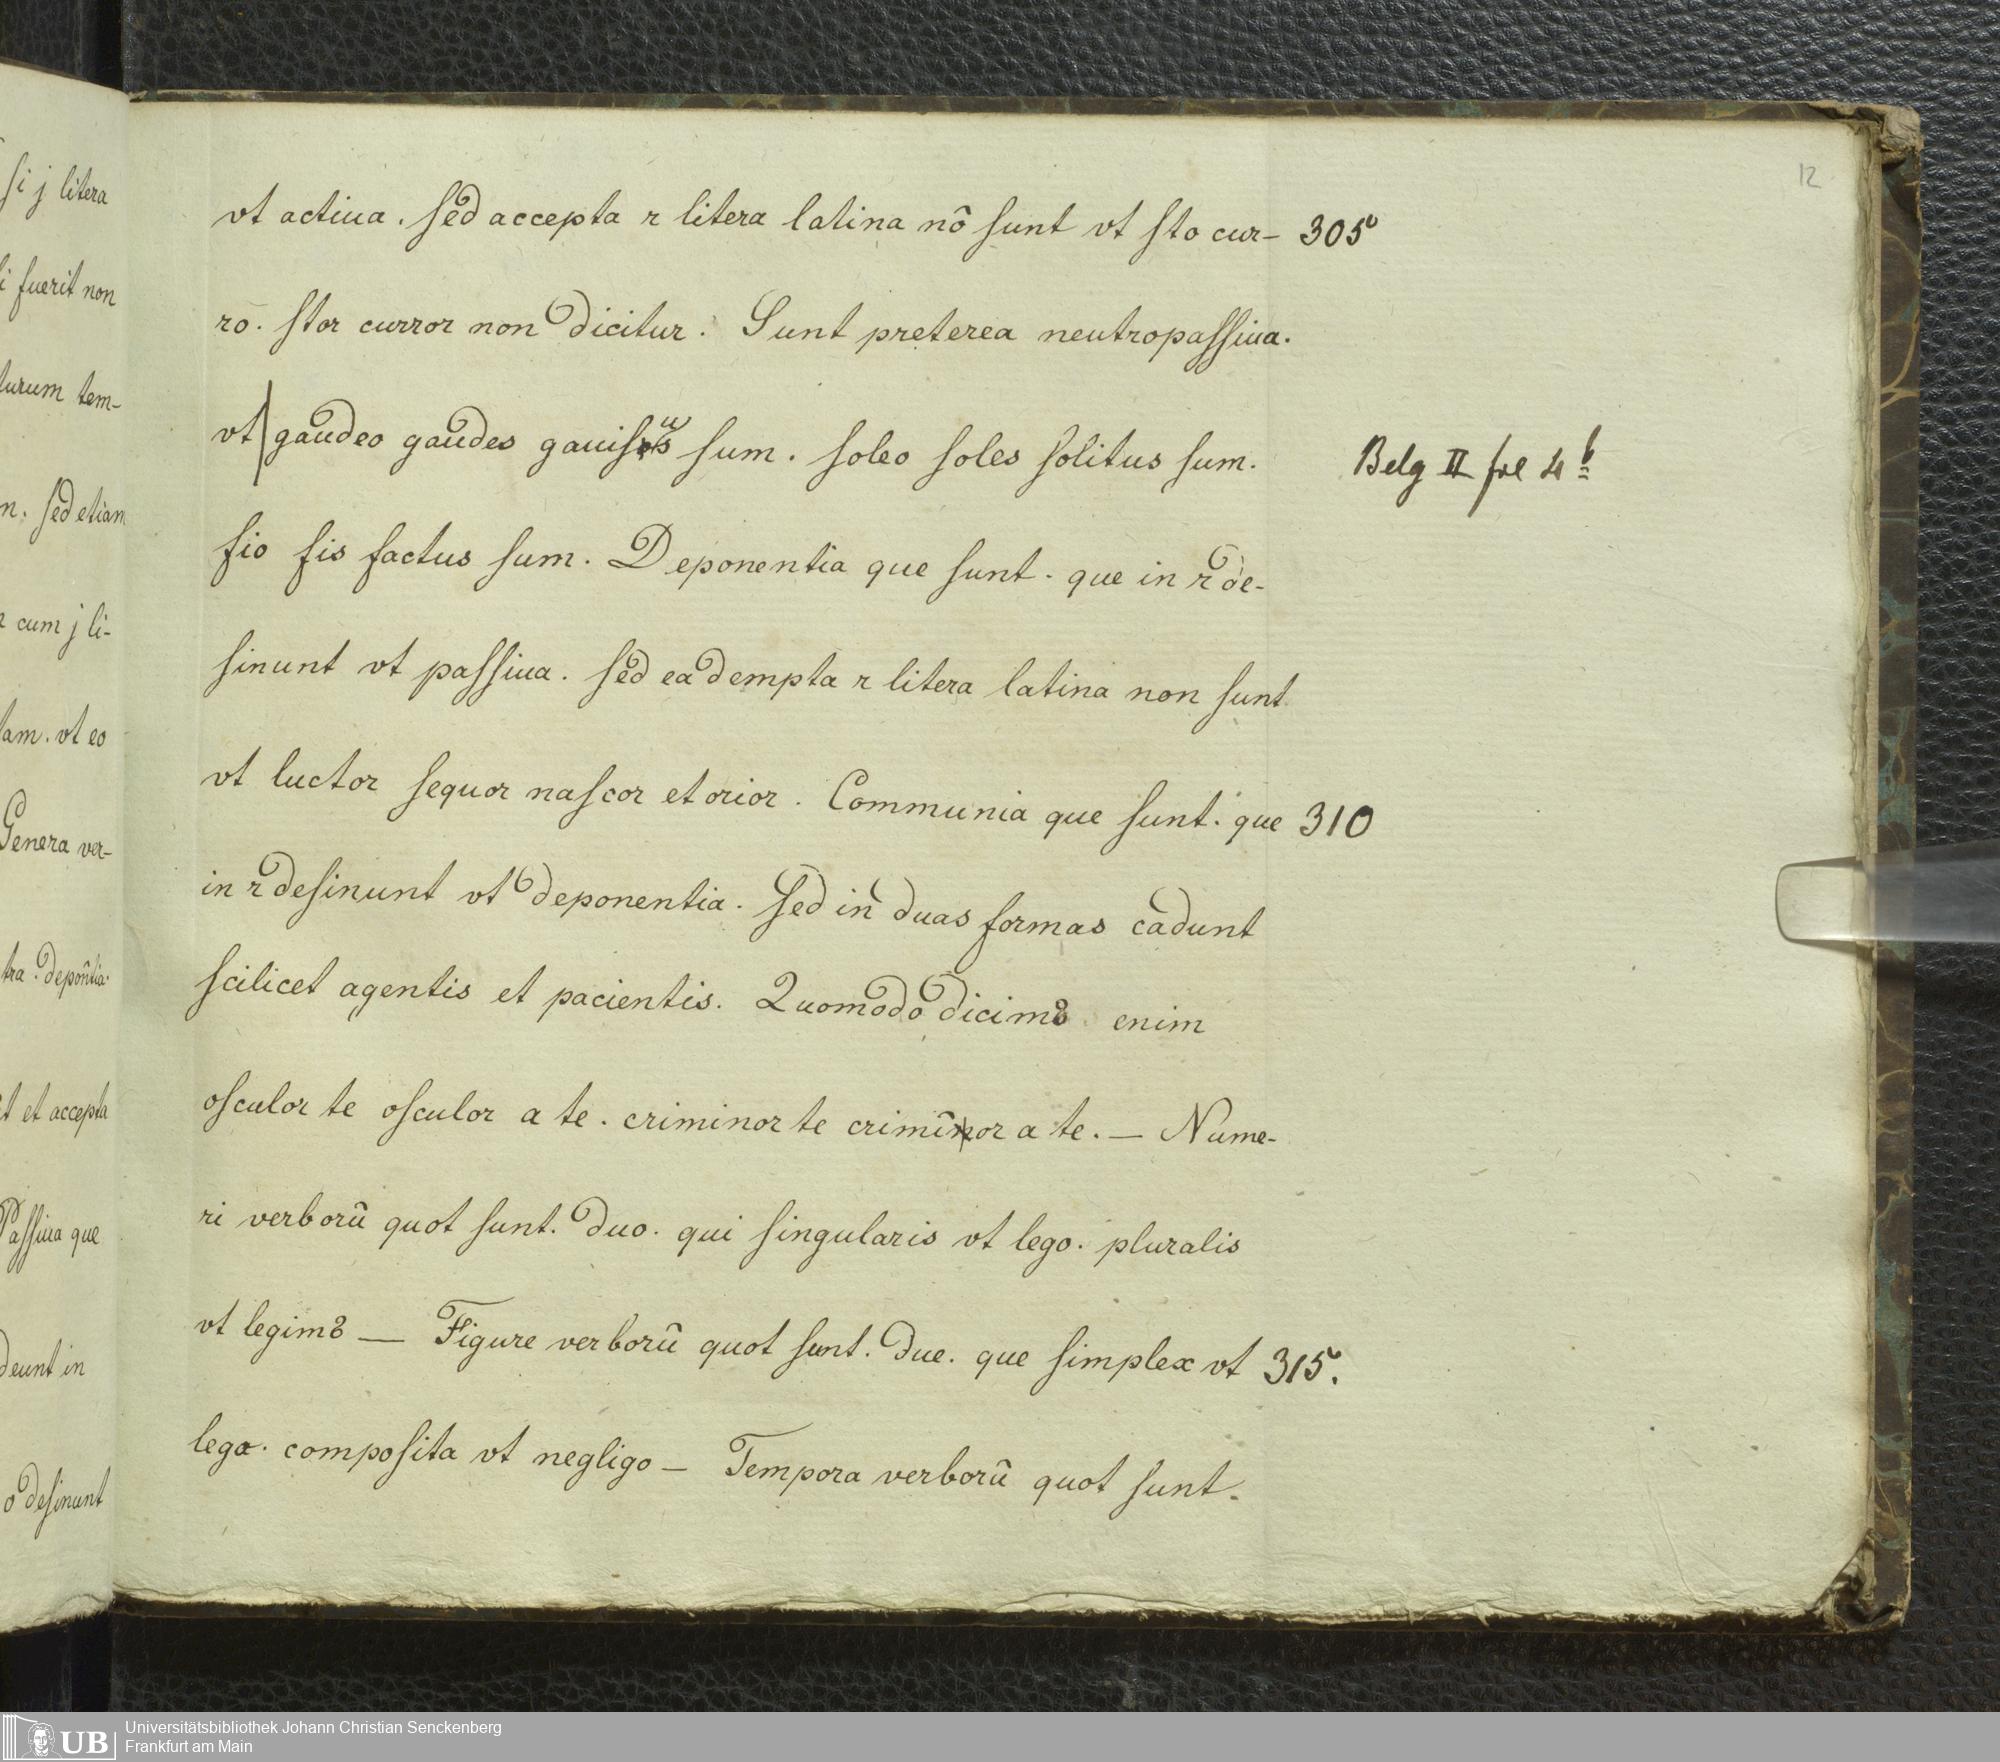 si j litera
fuerit non
turum tem-
n. sed etiam
cum j li-
tam. vt eo
Genera ver-
tra. depon̄tia.
et accepta
Passiua que
deunt in
o desinunt
12
vt actiua. sed accepta r litera latina nō sunt vt sto cur- 305
ro. stor curror non dicitur. Sunt preterea neutropassiua.
vt | gaudeo gaudes gauisus sum. soleo soles solitus sum. Belg II fol 4b
fio fis factus sum. Deponentia que sunt. que in r de-
sinunt vt passiua. sed ea dempta r litera latina non sunt
vt luctor sequor nascor et orior. Communia que sunt. que 310
in r desinunt vt deponentia. sed in duas formas cadunt
scilicet agentis et pacientis. Quomodo dicimꝰ enim
osculor te osculor a te. criminor te crimīnor a te. — Nume-
ri verborū quot sunt. duo. qui singularis vt lego. pluralis
vt legimꝰ — Figure verborū quot sunt. due. que simplex vt 315.
lego. composita vt negligo — Tempora verborū quot sunt.
UB Universitätsbibliothek Johann Christian Senckenberg
Frankfurt am Main